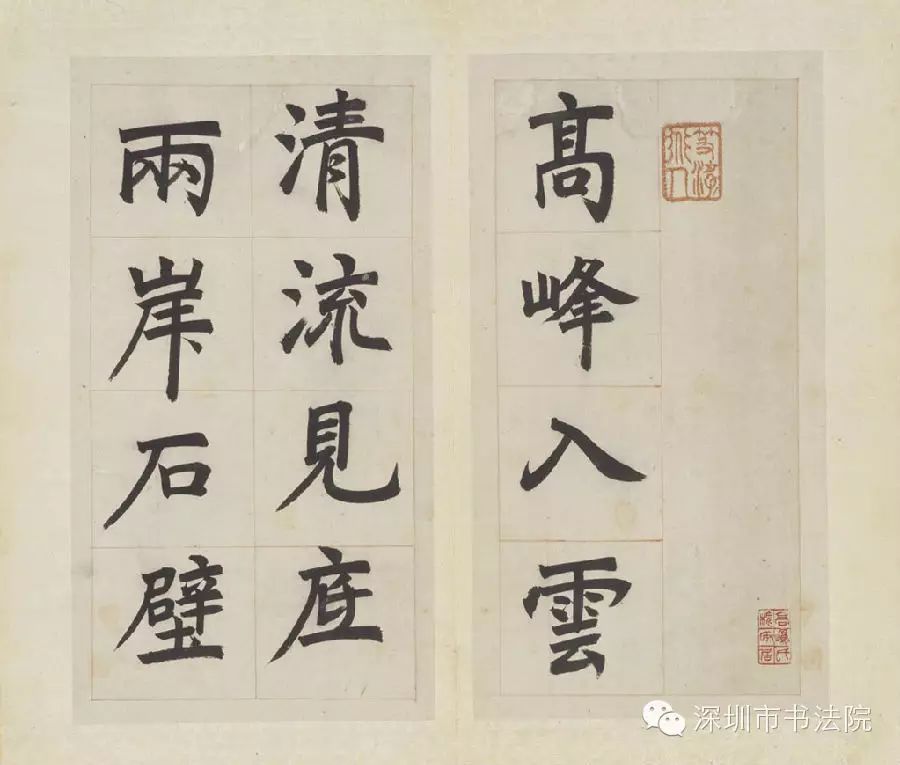 髙峰入雲
清流見底
兩岸石壁
深圳市书法院